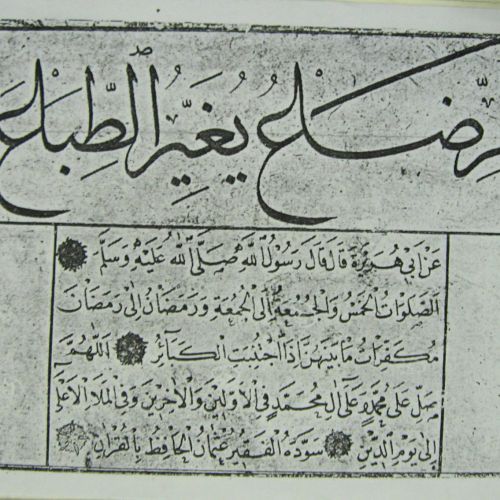 الرضاع يغير الطباع
عن ابي هريرة قال قال رسول الله صلى الله عليه وسلم
الصلوات الخمس والجمعة الى الجمعة ورمضان الى رمضان
مكفرات ما بينهن اذا اجتنبت الكبائر اللهم
صل على محمد وعلى آل محمد في الاولين والآخرين وفي الملأ الاعلى
الى يوم الدين سوده الفقير عثمان الحافظ بالقرآن